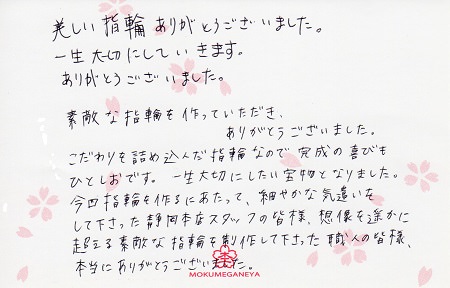 美しい指輪ありがとうございました。
一生大切にしていきます。
ありがとうございました。
素敵な指輪を作っていただき、
ありがとうございました。
こだわりを詰め込んだ指輪なので完成の喜びも
ひとしおです。一生大切にしたい宝物となりました。
今回指輪を作るにあたって、細やかな気遣いを
して下さった静岡本店スタッフの皆様、想像を遥かに
超える素敵な指輪を制作して下さった職人の皆様、
本当にありがとうございました。
MOKUMEGANEYA